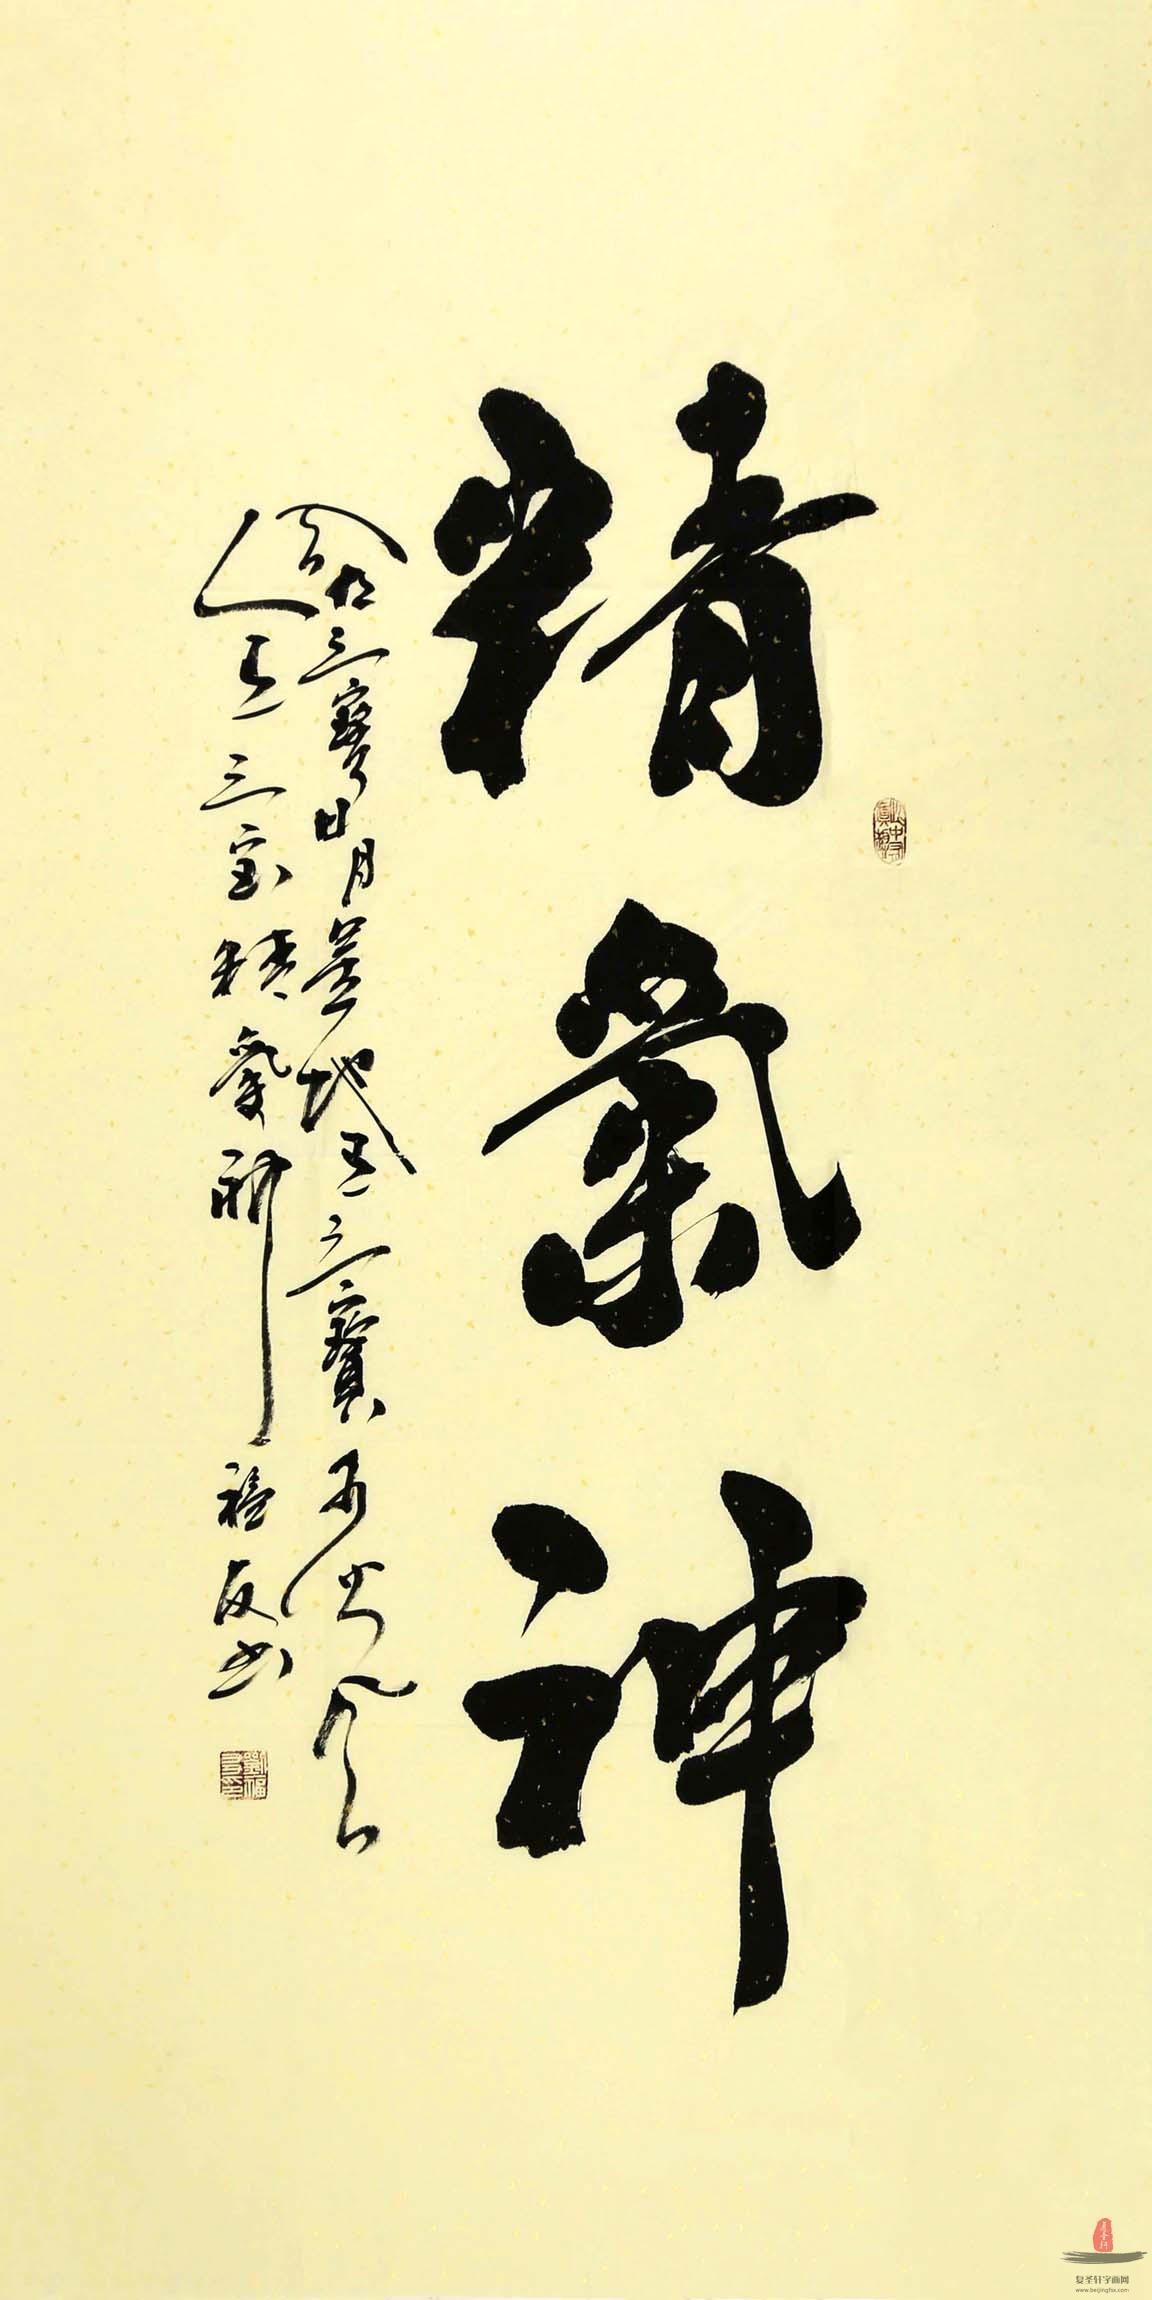 精氣神
天有三寶日月星地有三寶水火風
人有三宝精氣神 福友书
复圣轩字画网
www.beijingfsx.com